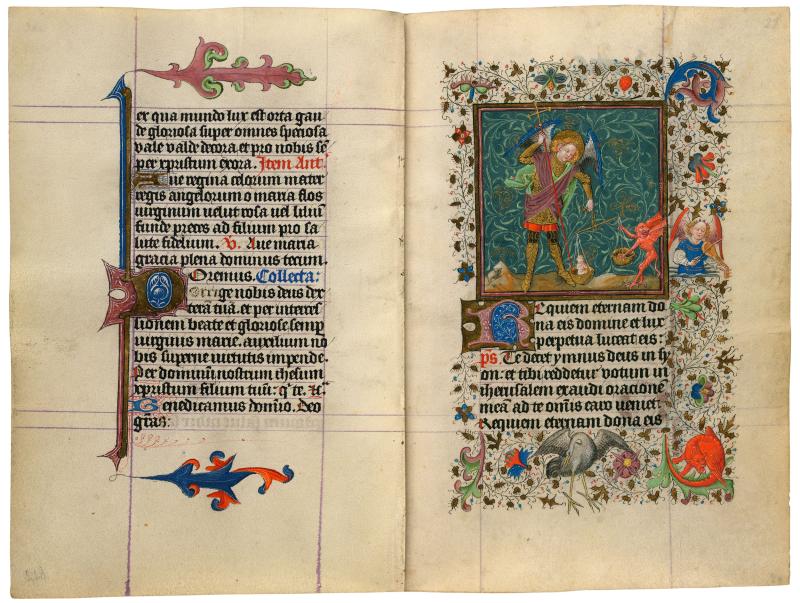 ex qua mundo lux est orta gau
de gloriosa super omnes speciosa
vale valde decora. et pro nobis se
per xpristum exora. Item Ant.
Aue regina celorum mater
regis angelorum o maria flos
uirginum uelut rosa uel lilium
funde preces ad filium pro sa
lute fidelium. V. Aue maria
gracia plena dominus tecum.
Oremus. Collecta:
Porrige nobis deus dex
teram tuam. et per interces
sionem beate et gloriose semp
uirginis marie. auxilium no
bis superne uirtutis impende.
Per dominum nostrum ihesum
xpristum filium tuum. q te.
Benedicamus domino. Deo
gras:
Requiem eternam do
na eis domine et lux
perpetua luceat eis:
ps. Te decet ymnus deus in sy
on. et tibi reddetur votum in
iherusalem exaudi oracionē
meā ad te omīs caro veniet:
Requiem eternam dona eis